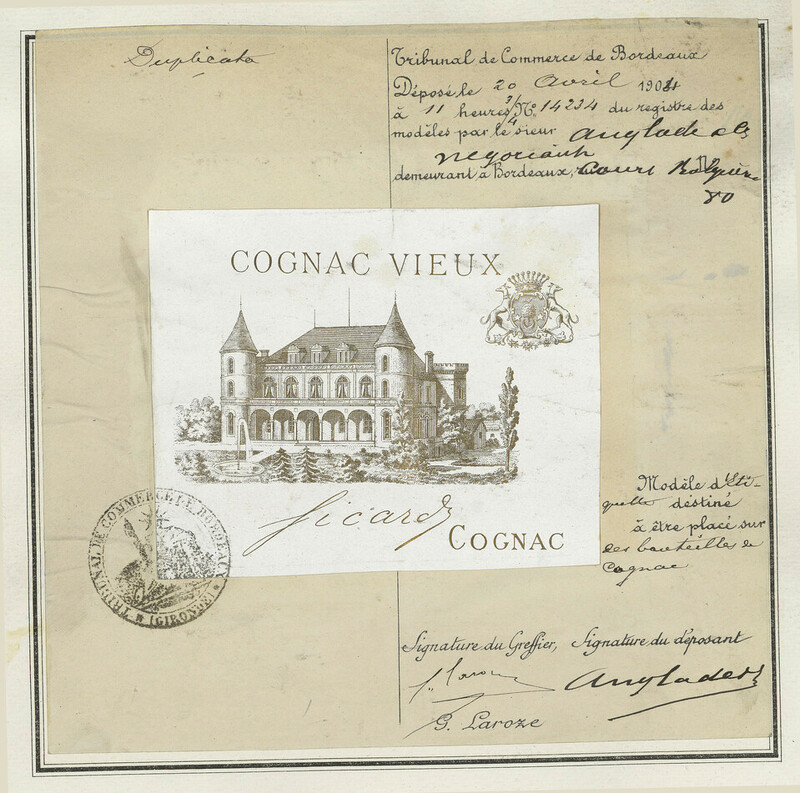 Duplicata
Tribunal de Commerce de Bordeaux
Déposé le 20 Avril 1904
à 11 heures 3/4 No. 14234 du registre des
modèles par le sieur Anglade & Cie
négociant
demeurant à Bordeaux, cours
80
COGNAC VIEUX
Sicard
COGNAC
TRIBUNAL DE COMMERCE DE BORDEAUX
(GIRONDE)
Modèle d'Eti-
quette destiné
à être placé sur
des bouteilles de
Cognac
Signature du Greffier, Signature du déposant
Anglade
G. Laroze